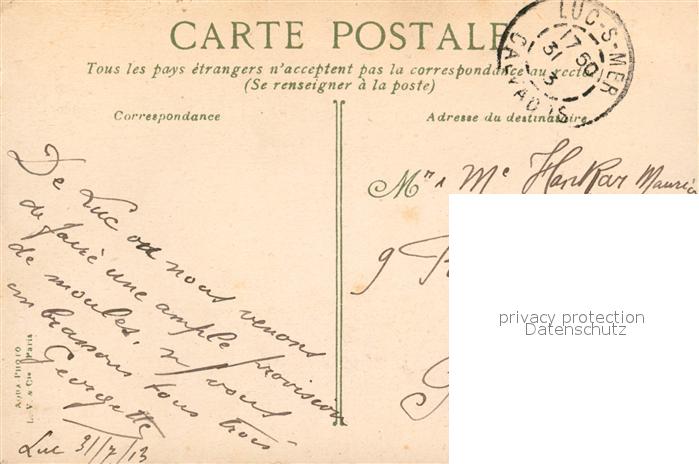 CARTE POSTALE
Tous les pays étrangers n'acceptent pas la correspondance au recto
(Se renseigner à la poste)
Correspondance
Adresse du destinataire
LUC-S-MER
17 50
31
CALVADOS
De Luc où nous venons
de faire une ample provision
de moules, n/ vous
embrassons tous trois
Georgette
Luc 31/7/13
Mr & Me Maurice
9
AQUA-PHOTO
L. V. & Cie Paris
privacy protection
Datenschutz